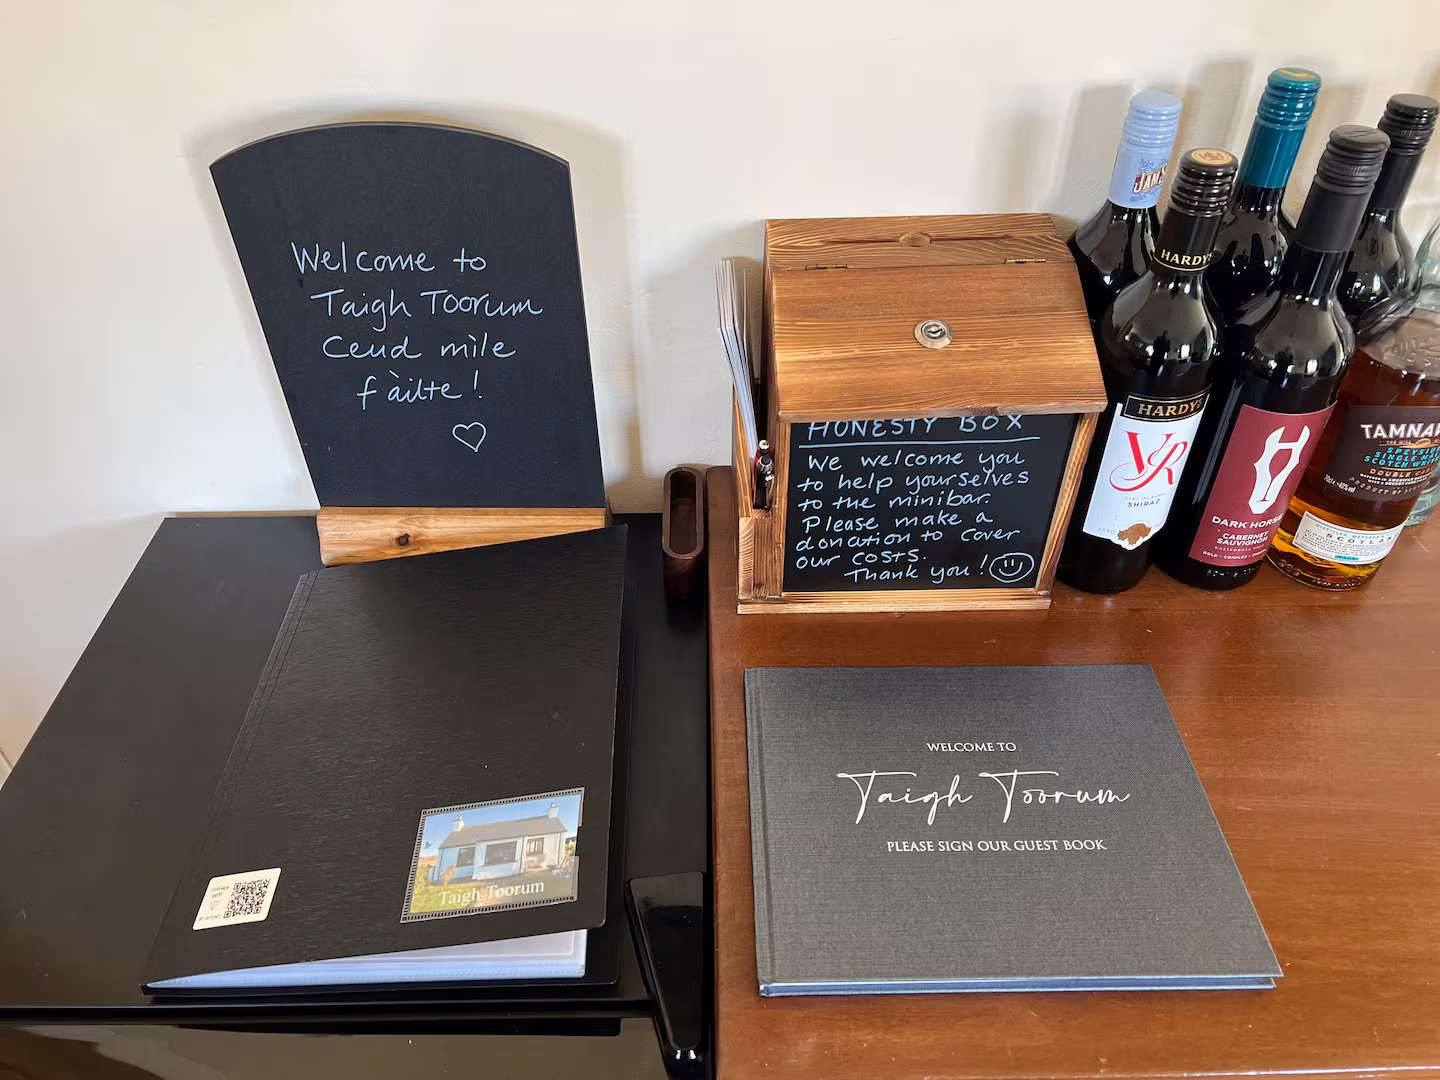 Welcome to
Taigh Toorum
Ceud mìle
fàilte!
HONESTY BOX
We welcome you
to help yourselves
to the minibar.
Please make a
donation to cover
our costs.
Thank you!
JAM
HARDYS
HARDYS
VR
SHIRAZ
DARK HORSE
CABERNET
SAUVIGNON
TAMNAV
SPEYSIDE
SINGLE MALT
SCOTCH WHISKY
DOUBLE CASK
SCOTLAND
Taigh Toorum
WELCOME TO
Taigh Toorum
PLEASE SIGN OUR GUEST BOOK